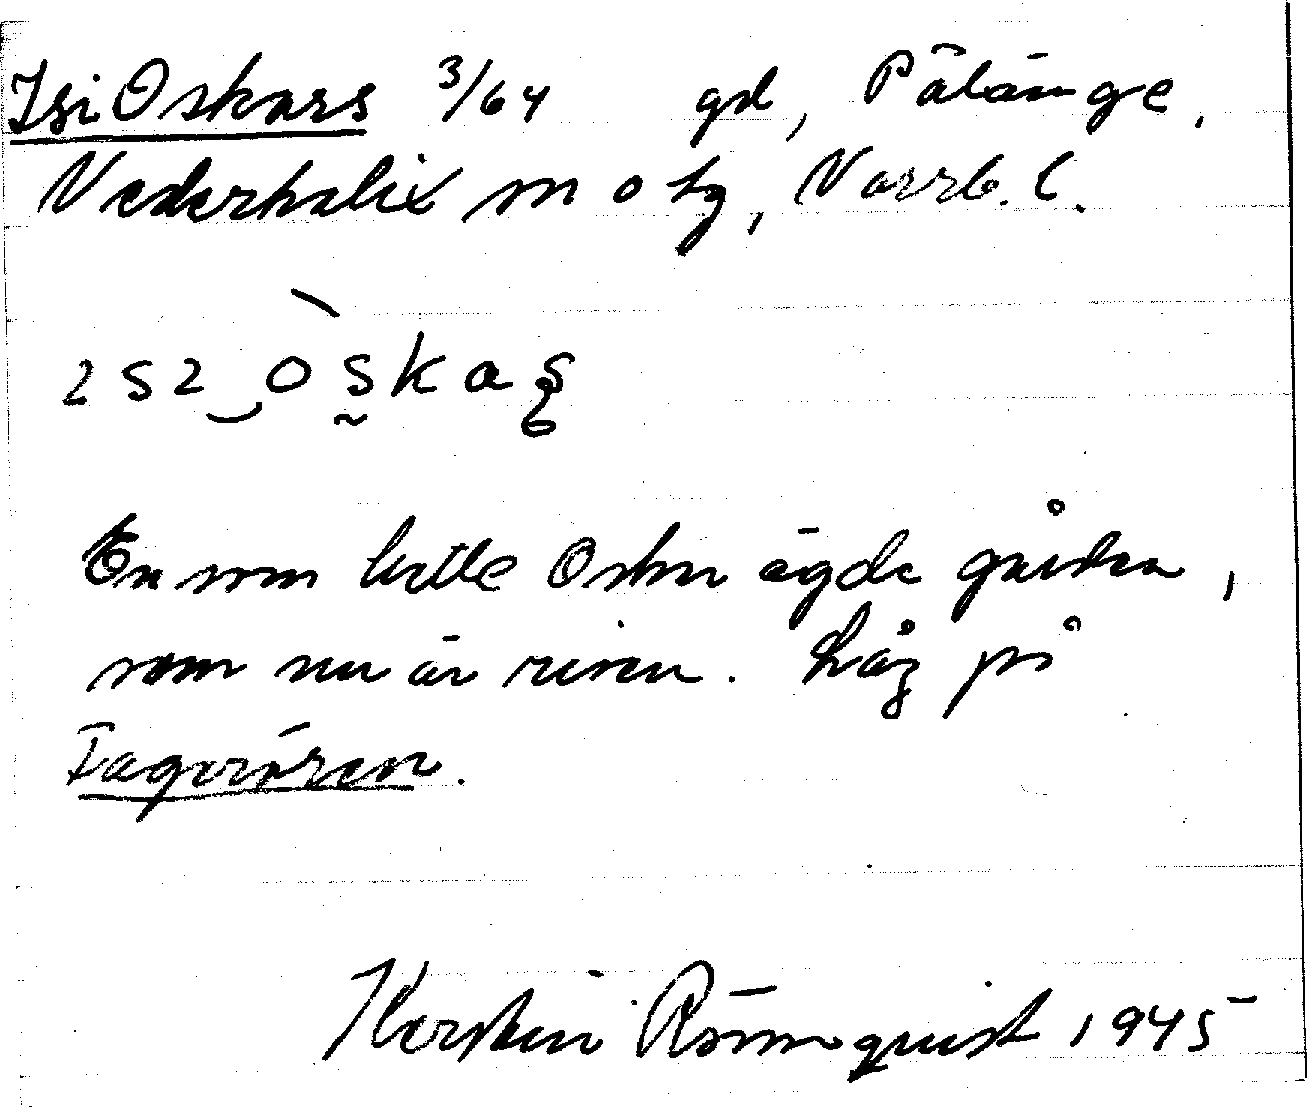 IsiOskars 3/64 gd, Pålänge,
Nederkalix sn o tg, Norrb. l.
ɩsɩ‿òs̰kaʂ
En som hette Oskar ägde gården,
som nu är riven. Låg på
Fagerören.
Kerstin Rönnquist 1945